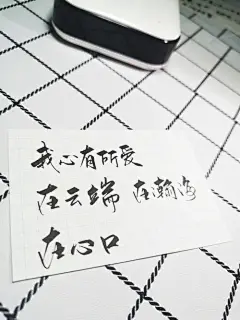 我心有所爱
在云端 在瀚海
在心口